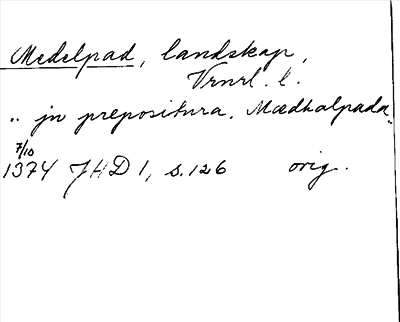 Medelpad, landskap,
Vrnrl. l.
„ jn prepositura. Mædhalpada"
7/10
1374 JHD 1, s. 126 orig.